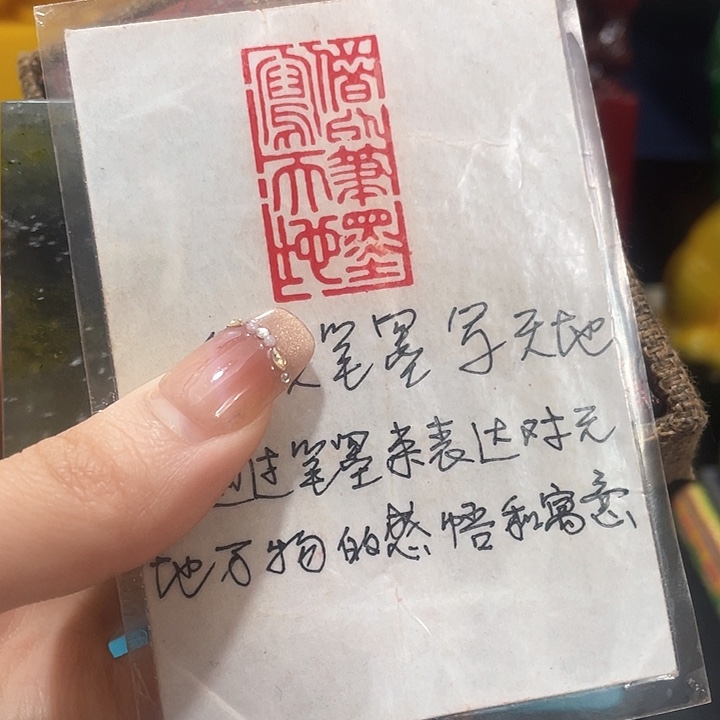 借以筆墨
寫天地
笔墨写天地
过笔墨来表达对天
地万物的感悟和寓意